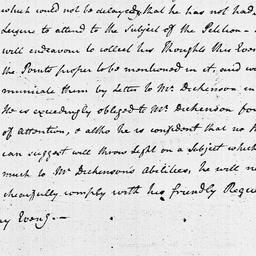 which could not be delayed, that he has not had
Leisure to attend to the Subject of the Petition –
will endeavour to collect his Thoughts this Even
the Points proper to be mentioned in it, and w
municate them by Letter to Mr. Dickenson in
He is exceedingly obliged to Mr. Dickenson for
of Attention, & altho he is confident that no H
can suggest will throw Light on a Subject which
much to Mr. Dickenson's Abilities, he will n
chearfully comply with his friendly Reque
ay Eveng. –